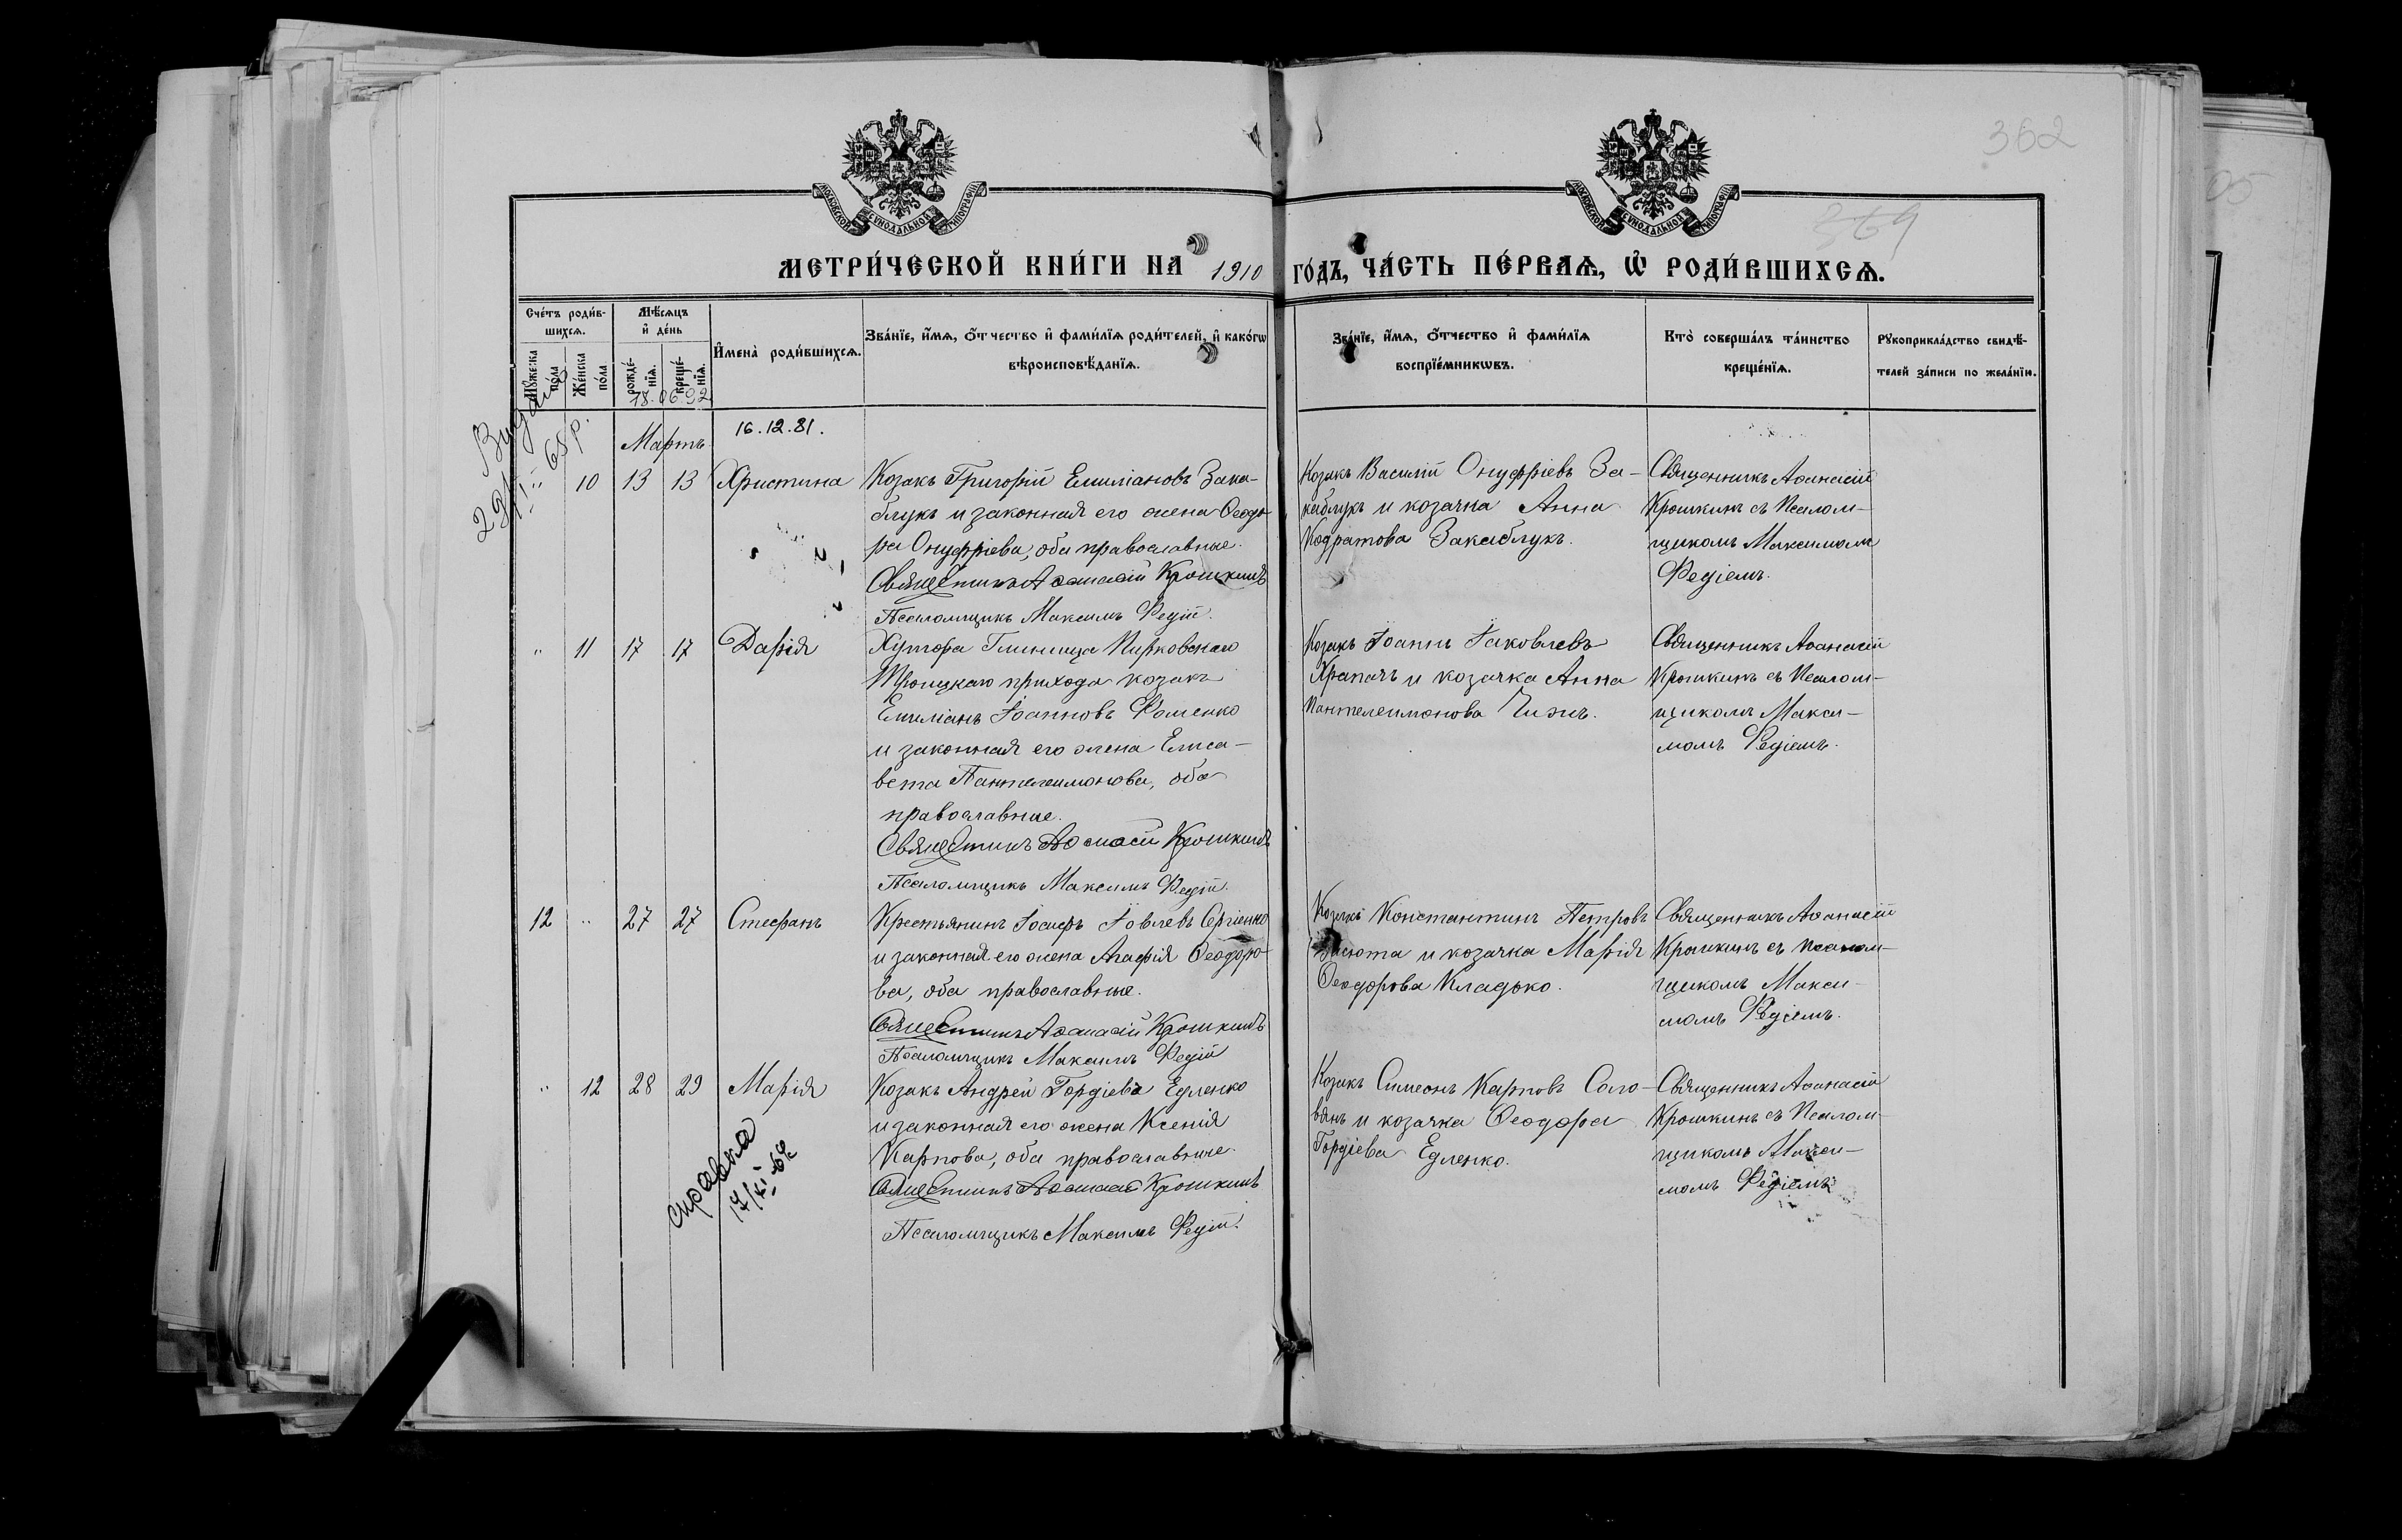 362
369
МОСКОВСКОЙ СѴНОДАЛЬНОЙ ТИПОГРАФІИ
МОСКОВСКОЙ СѴНОДАЛЬНОЙ ТИПОГРАФІИ
МЕТРИ́ЧЕСКОЙ КНИ́ГИ НА 1910 ГО́ДЪ, ЧА́СТЬ ПЕ́РВАѦ, Ѡ҆ РОДИ́ВШИХСѦ.
Сче́тъ роди́в-
шихсѧ.
Мѣ́сѧцъ
и҆ де́нь
Мꙋ́жеска
по́ла
Же́нска
по́ла
рожде́-
нїѧ.
креще́-
нїѧ.
И҆мена̀ роди́вшихсѧ.
Зва́нїе, и҆́мѧ, ѻ҆́тчество и҆ фами́лїѧ роди́телей, и҆ како́гѡ
вѣроисповѣ́данїѧ.
Зва́нїе, и҆́мѧ, ѻ҆́тчество и҆ фами́лїѧ
воспрїе́мникѡвъ.
Кто̀ соверша́лъ та́инство
креще́нїѧ.
Рꙋкоприкла́дство свидѣ́-
телей за́писи по жела́нїю.
18.06.92
16.12.81.
Мартъ
10 13 13 Христина
Козакъ Григорій Емиліановъ Зака-
блукъ и законная его жена Ѳеодо-
ра Онуфріева, оба православные.
Священникъ Аѳанасій Крошкинъ
Псаломщикъ Максимъ Редій.
Козакъ Василій Онуфріевъ За-
каблукъ и козачка Анна
Кодратова Закаблукъ.
Священникъ Аѳанасій
Крошкинъ съ Псалом-
щикомъ Максимомъ
Редіемъ.
" 11 17 17 Дарія
Хутора Глиница Пирковскаго
Троицкаго прихода козакъ
Емиліанъ Іоанновъ Фоменко
и законная его жена Елиса-
вета Пантелеимонова, оба
православные.
Священникъ Аѳанасій Крошкинъ
Псаломщикъ Максимъ Редій.
Козакъ Іоаннъ Іаковлевъ
Храпачъ и козачка Анна
Пантелеимонова Чижъ.
Священникъ Аѳанасій
Крошкинъ съ Псалом-
щикомъ Макси-
момъ Редіемъ.
12 " 27 27 Стефанъ
Крестьянинъ Іосифъ Іовлевъ Сергіенко
и законная его жена Агафія Ѳеодоро-
ва, оба православные.
Священникъ Аѳанасій Крошкинъ
Псаломщикъ Максимъ Редій
Козакъ Константинъ Петровъ
и козачка Марія
Ѳеодорова Кладько.
Священникъ Аѳанасій
Крошкинъ съ Псалом-
щикомъ Макси-
момъ Редіемъ.
" 12 28 29 Марія
Козакъ Андрей Гордіевъ Едленко
и законная его жена Ксенія
Карпова, оба православные.
Священникъ Аѳанасій Крошкинъ
Псаломщикъ Максимъ Редій.
Козакъ Симеонъ Карповъ Соло-
вянъ и козачка Ѳеодора
Гордіева Едленко.
Священникъ Аѳанасій
Крошкинъ съ Псалом-
щикомъ Макси-
момъ Редіемъ
справка